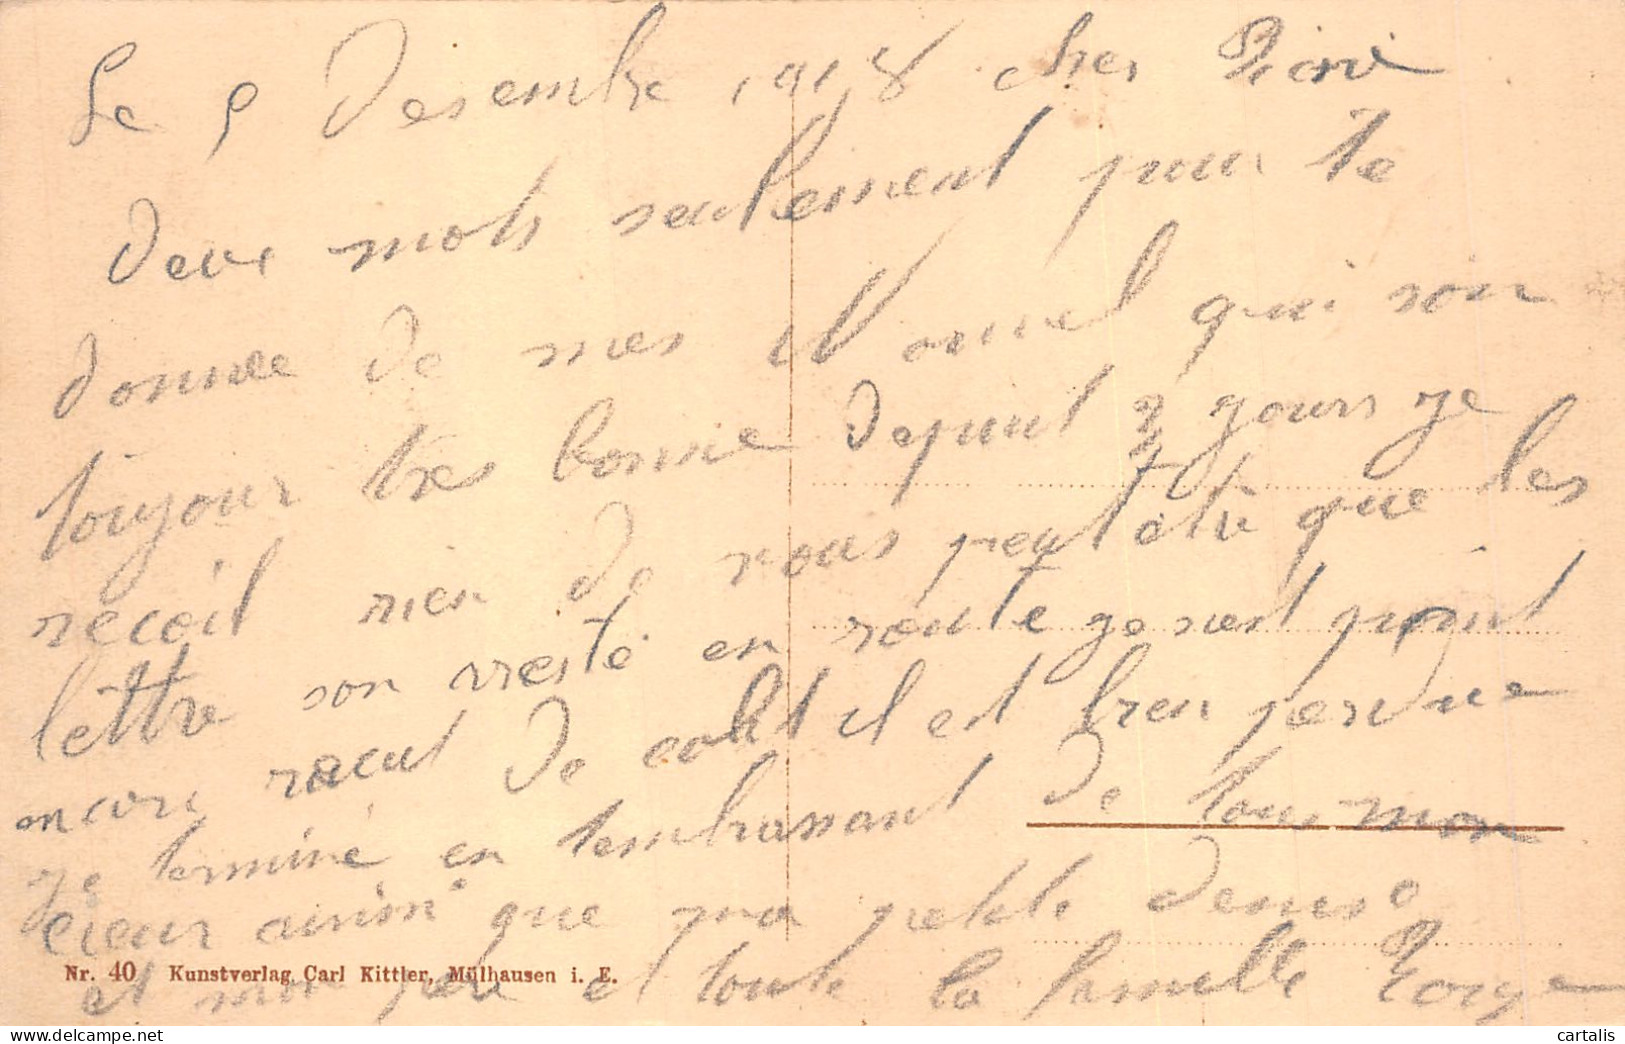 Le 9 Desembre 1918 cher
deux mots seulement pour te
donnee de mes nouvel qui son
toujour tres bonne depuit 3 yours je
recoit rien de vous peut être que les
lettre son resté en route je n'est point
encore recut de colit il est bien perdue
je terminé en t'embrassant de tous mon
cieur ainsi que ma petite Denise
et mon père et toute la famille
Nr. 40 Kunstverlag Carl Kittler, Mülhausen i. E.
cartalis